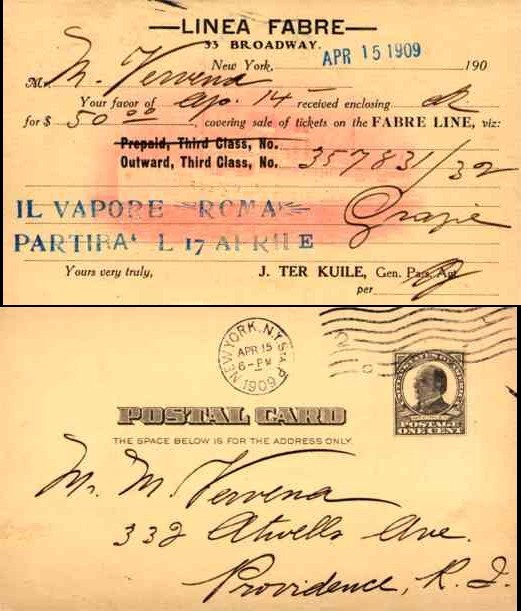 —LINEA FABRE—
33 BROADWAY.
New York, APR 15 1909 190
M. M. Vervena
Your favor of Apr. 14 received enclosing ck
for $ 50 00, covering sale of tickets on the FABRE LINE, viz:
Prepaid, Third Class, No.
Outward, Third Class, No. 357831/32
IL VAPORE "ROMA" Grazie
PARTIRA' L 17 APRILE
Yours very truly, J. TER KUILE, Gen. Pass. Agt.
per
NEW YORK, N.Y. STA. P
APR 15
6-PM
1909
POSTAGE
ONE CENT
POSTAL CARD
THE SPACE BELOW IS FOR THE ADDRESS ONLY.
Mr. M. Vervena
332 Atwells Ave.
Providence, R. I.